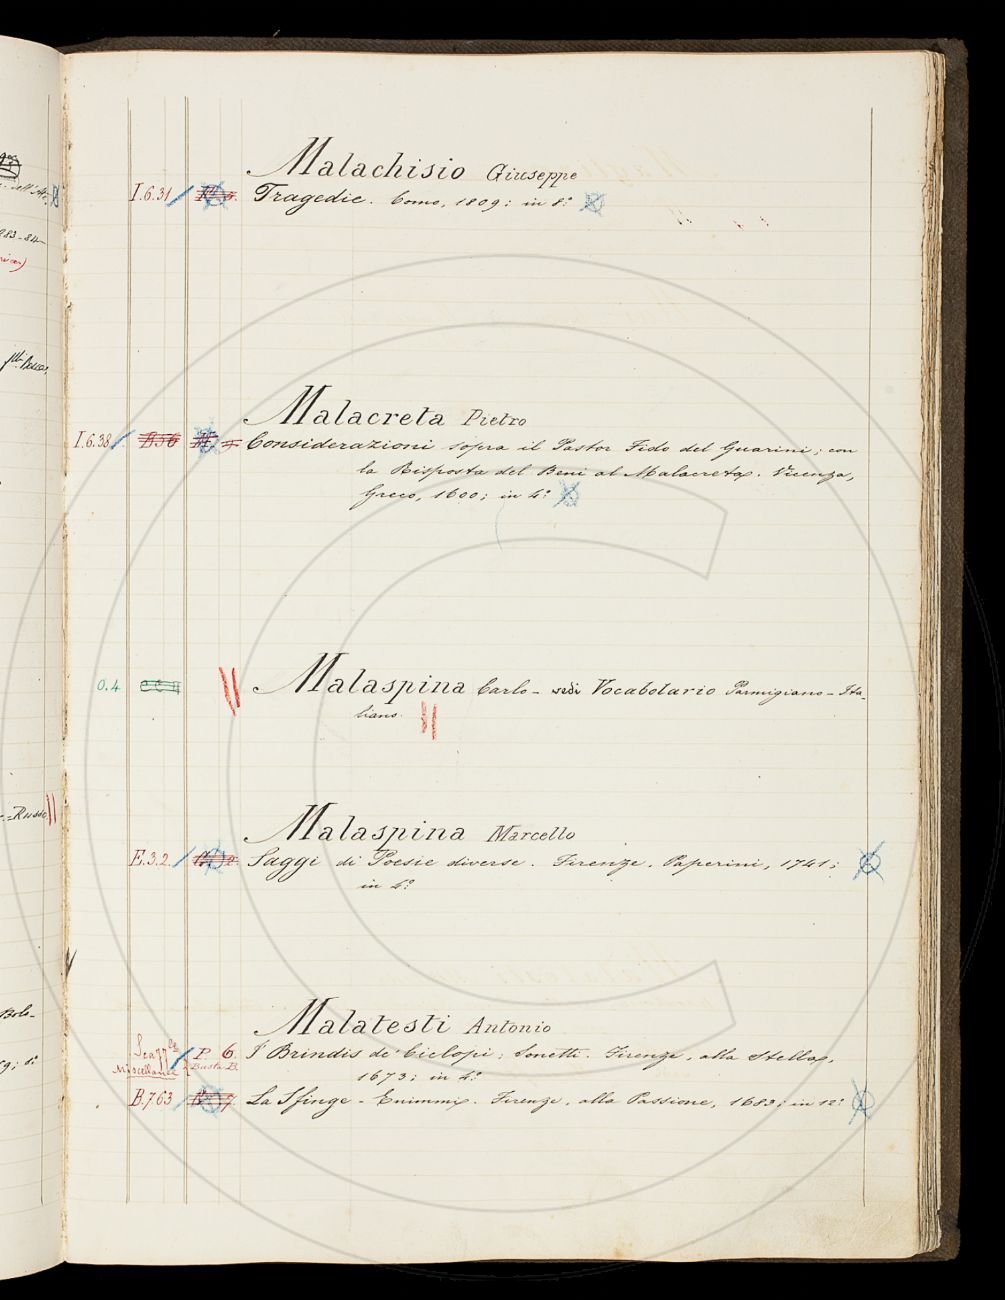 Malachisio Giuseppe
I.6.31 Tragedie. Como, 1809; in 8.°
Malacreta Pietro
I.6.38 B56 Considerazioni sopra il Pastor Fido del Guarini; con
la Risposta del Beni al Malacreta. Vicenza,
Greco, 1600; in 4.°
O.4 Malaspina Carlo - vedi Vocabolario Parmigiano-Ita-
liano.
Malaspina Marcello
E.3.2. Saggi di Poesie diverse. Firenze, Paperini, 1741;
in 4.°
Malatesti Antonio
P. 6. I Brindis de' Ciclopi; Sonetti. Firenze, alla Stella,
Miscellanee Busta B.
1673; in 4.°
B.7.63 La Sfinge - Enimmi. Firenze, alla Passione, 1683; in 12.°
283-84
-Russo
Bolo-